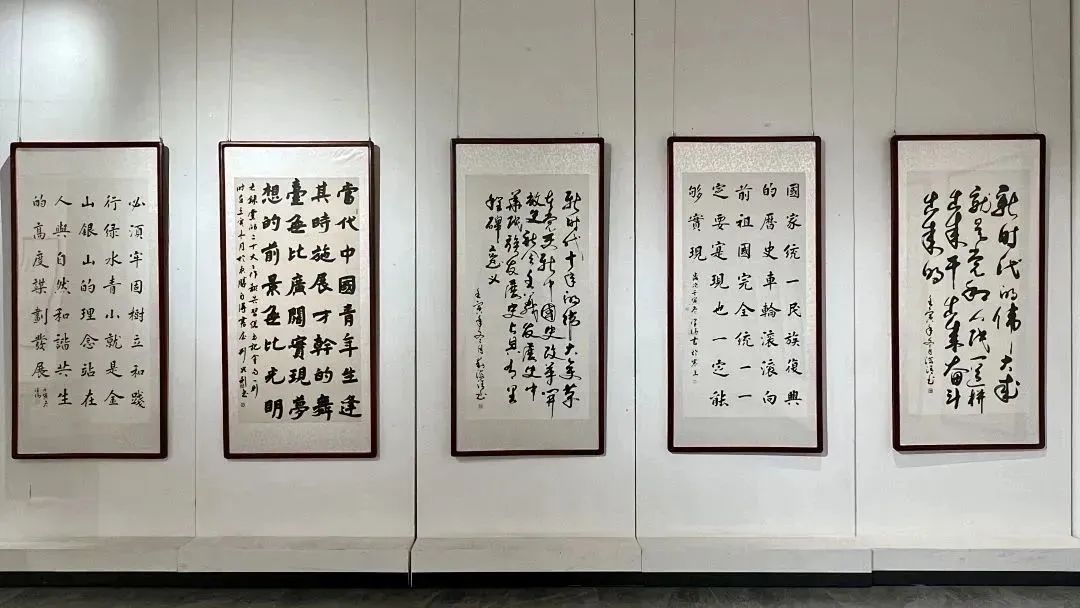 必須牢固樹立和踐
行绿水青山就是金
山銀山的理念站在
人與自然和諧共生
的高度謀劃發展
當代中國青年生逢
其時施展才幹的舞
臺無比廣闊實現夢
想的前景無比光明
新时代十年的偉大變革
在党史新中國史改革開
放史社會主義發展史中
華民族發展史上具有里
程碑意义
壬寅年冬月
國家統一民族復興
的曆史車輪滾滾向
前祖國完全統一一
定要實現也一定能
够實現
新时代的偉大成
就是党和人民一道拼
出来干出来奋斗
出来的
壬寅年冬月